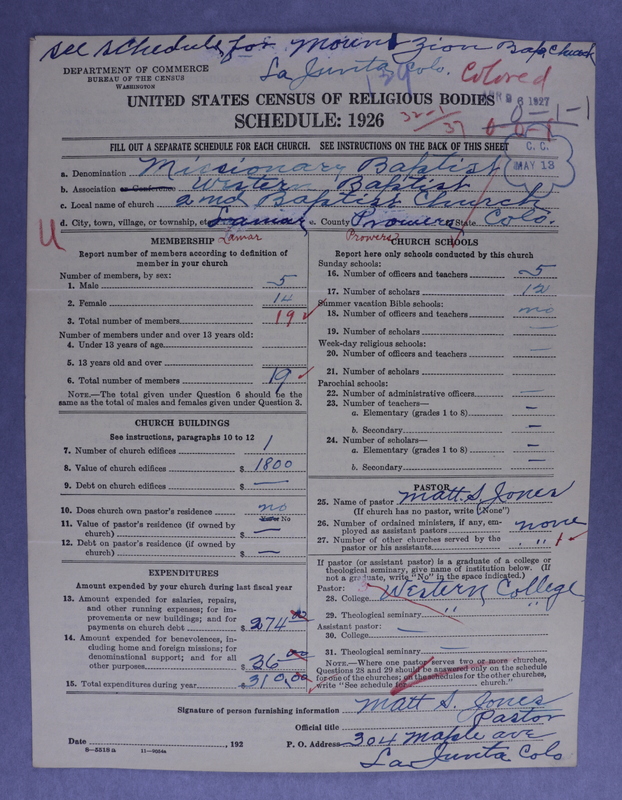 See schedule for Mount Zion Bap Church
La Junta Colo. Colored
DEPARTMENT OF COMMERCE
BUREAU OF THE CENSUS
WASHINGTON
APR 26 1927
UNITED STATES CENSUS OF RELIGIOUS BODIES
SCHEDULE: 1926
32-1
37
0-1-1
FILL OUT A SEPARATE SCHEDULE FOR EACH CHURCH. SEE INSTRUCTIONS ON THE BACK OF THIS SHEET
C. C.
MAY 13
a. Denomination Missionary Baptist
b. Association or Conference Western Baptist
c. Local name of church 2nd Baptist Church
d. City, town, village, or township, etc. Lamar e. County Prowers State Colo.
U
Lamar Prowers
MEMBERSHIP
Report number of members according to definition of
member in your church
Number of members, by sex:
1. Male 5
2. Female 14
3. Total number of members 19
Number of members under and over 13 years old:
4. Under 13 years of age
5. 13 years old and over
6. Total number of members 19
NOTE.—The total given under Question 6 should be the
same as the total of males and females given under Question 3.
CHURCH BUILDINGS
See instructions, paragraphs 10 to 12
7. Number of church edifices 1
8. Value of church edifices $ 1800
9. Debt on church edifices $ —
10. Does church own pastor's residence? no
Yes or No
11. Value of pastor's residence (if owned by
church) $ —
12. Debt on pastor's residence (if owned by
church) $ —
EXPENDITURES
Amount expended by your church during last fiscal year
13. Amount expended for salaries, repairs,
and other running expenses; for im-
provements or new buildings; and for
payments on church debt $ 274.00
14. Amount expended for benevolences, in-
cluding home and foreign missions; for
denominational support; and for all
other purposes $ 36.00
15. Total expenditures during year $ 310.00
CHURCH SCHOOLS
Report here only schools conducted by this church
Sunday schools:
16. Number of officers and teachers 5
17. Number of scholars 12
Summer vacation Bible schools:
18. Number of officers and teachers no
19. Number of scholars —
Week-day religious schools:
20. Number of officers and teachers —
21. Number of scholars
Parochial schools:
22. Number of administrative officers —
23. Number of teachers—
a. Elementary (grades 1 to 8) —
b. Secondary —
24. Number of scholars—
a. Elementary (grades 1 to 8) —
b. Secondary —
PASTOR
25. Name of pastor Matt S. Jones
(If church has no pastor, write "None")
26. Number of ordained ministers, if any, em-
ployed as assistant pastors none
27. Number of other churches served by the
pastor or his assistants " 1
If pastor (or assistant pastor) is a graduate of a college or
theological seminary, give name of institution below. (If
not a graduate, write "No" in the space indicated.)
Pastor:
28. College Western College
29. Theological seminary " "
Assistant pastor:
30. College —
31. Theological seminary —
NOTE.—Where one pastor serves two or more churches,
Questions 28 and 29 should be answered only on the schedule
for one of the churches; on the schedules for the other churches,
write "See schedule for church."
Signature of person furnishing information Matt S. Jones
Official title Pastor
Date , 192 P. O. Address 304 Maple ave
8—5518a 11—9054a La Junta Colo